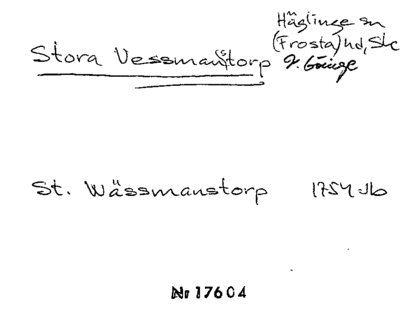 Häglinge sn
(Frosta) hd, Sk
V. Göinge
Stora Vessmanstorp
St. Wässmanstorp 1754 Jb
Nr 17604